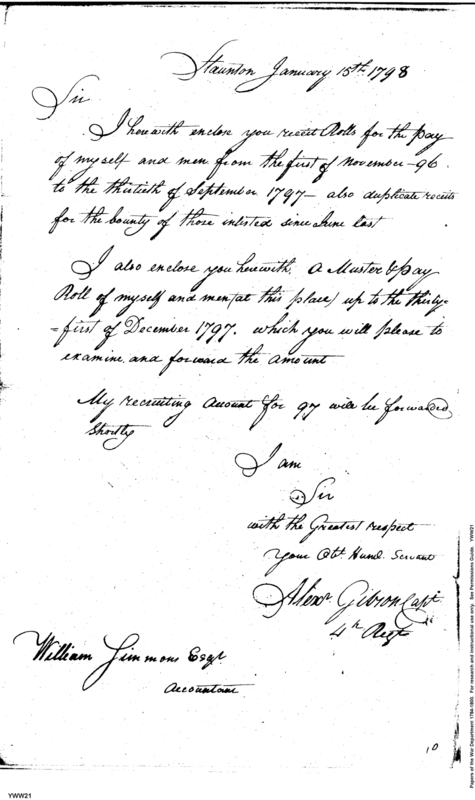 Staunton January 15th 1798
Sir
I herewith enclose you receit Rolls for the pay
of myself and men from the first of November - 96.
to the thirtieth of September 1797 - also duplicate receits
for the bounty of those inlisted since June last
I also enclose you herewith, a Muster & pay
Roll of myself and men (at this place) up to the thirty=
=first of December 1797. which you will please to
examine and forward the amount
My recruiting account for 97 will be forwarded
shortly
I am
Sir
with the Greatest respect
your Obt. Huml. Servant
Alexr. Gibson Capt.
4th Regt
William Simmons Esqr
Accountant
10
YWW21
Papers of the War Department 1784-1800. For research and instructional use only. See Permissions Guide. YWW21